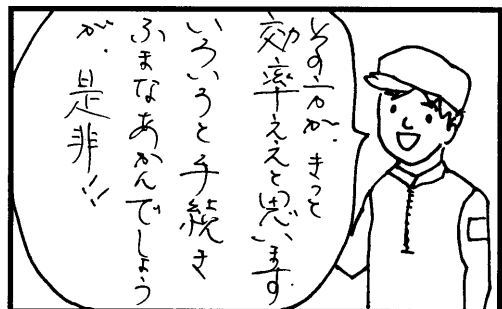 その方が、きっと
効率ええと思います。
いろいろと手続き
ふまなあかんでしょう
が、是非!!